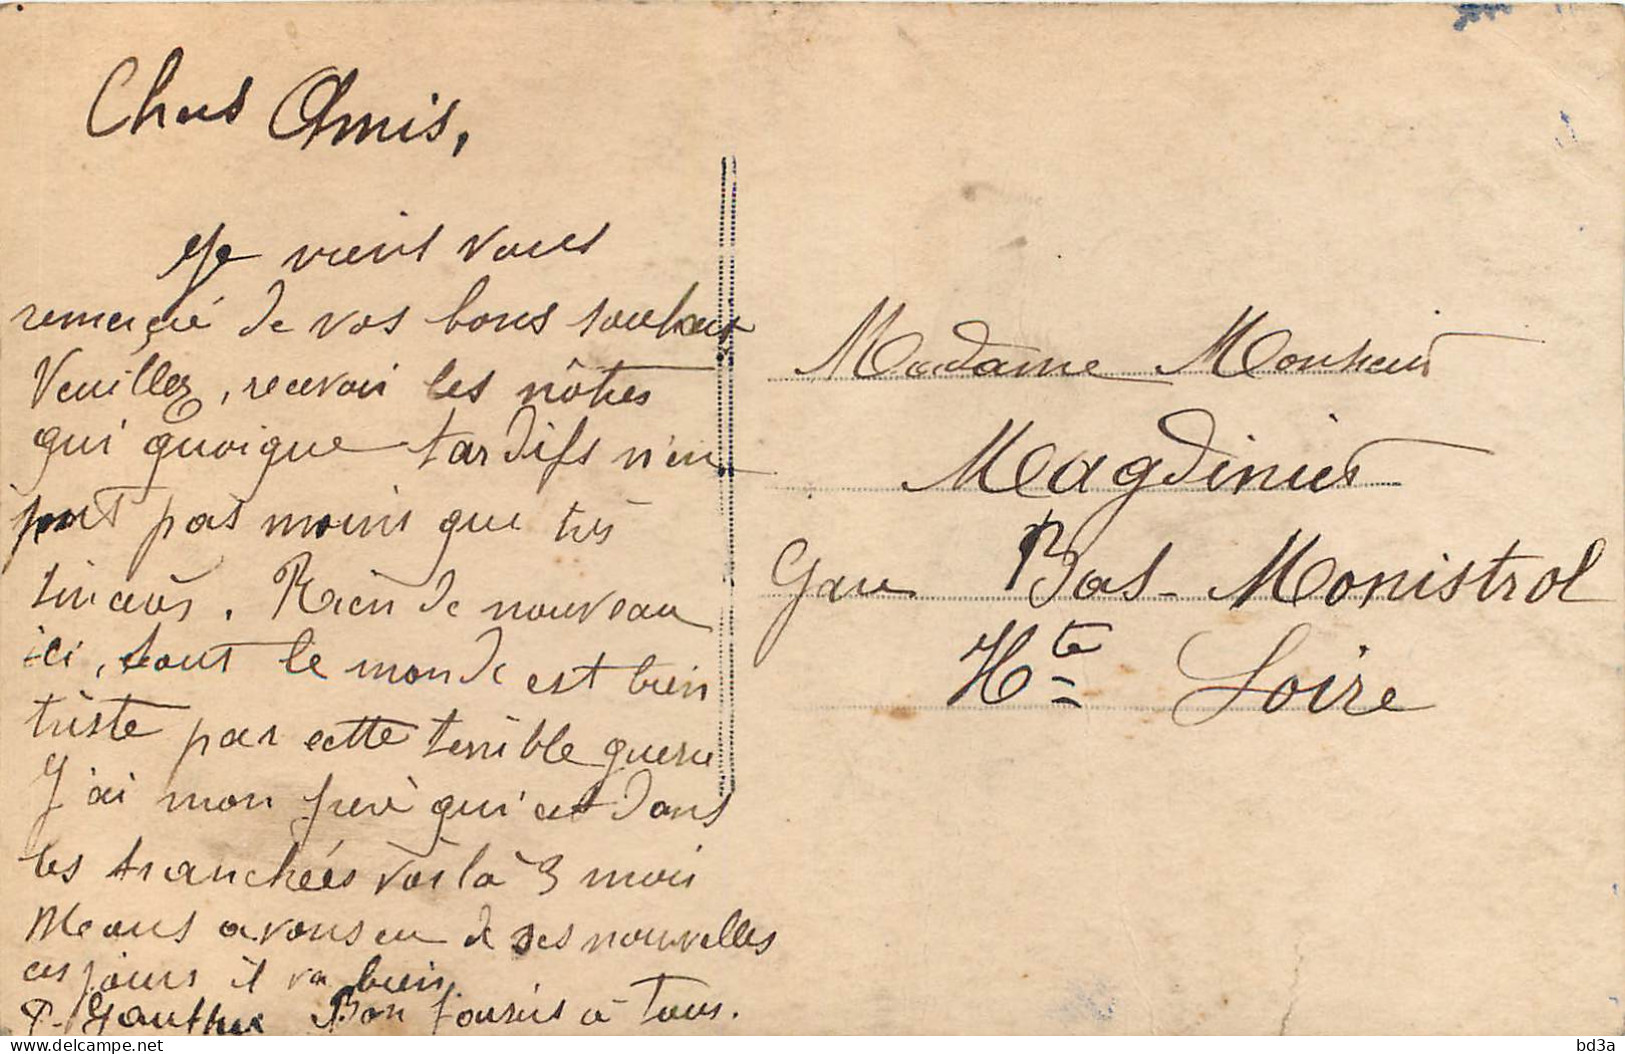 Chers Amis,
Je viens vous
remercié de vos bons souhait
Veuillez, recevoir les nôtres
qui quoique tardifs n'en
pas moins que très
sincères. Rien de nouveau
ici, tout le monde est bien
triste par cette terrible guerre
J'ai mon frère qui est dans
les tranchées voilà 3 mois
avons eu de ses nouvelles
ces jours il va bien.
P. Gauthier Bon à tous.
Madame Monsieur
Magdinier
Gare Bas-Monistrol
Hte Loire
delcampe.net
bd3a